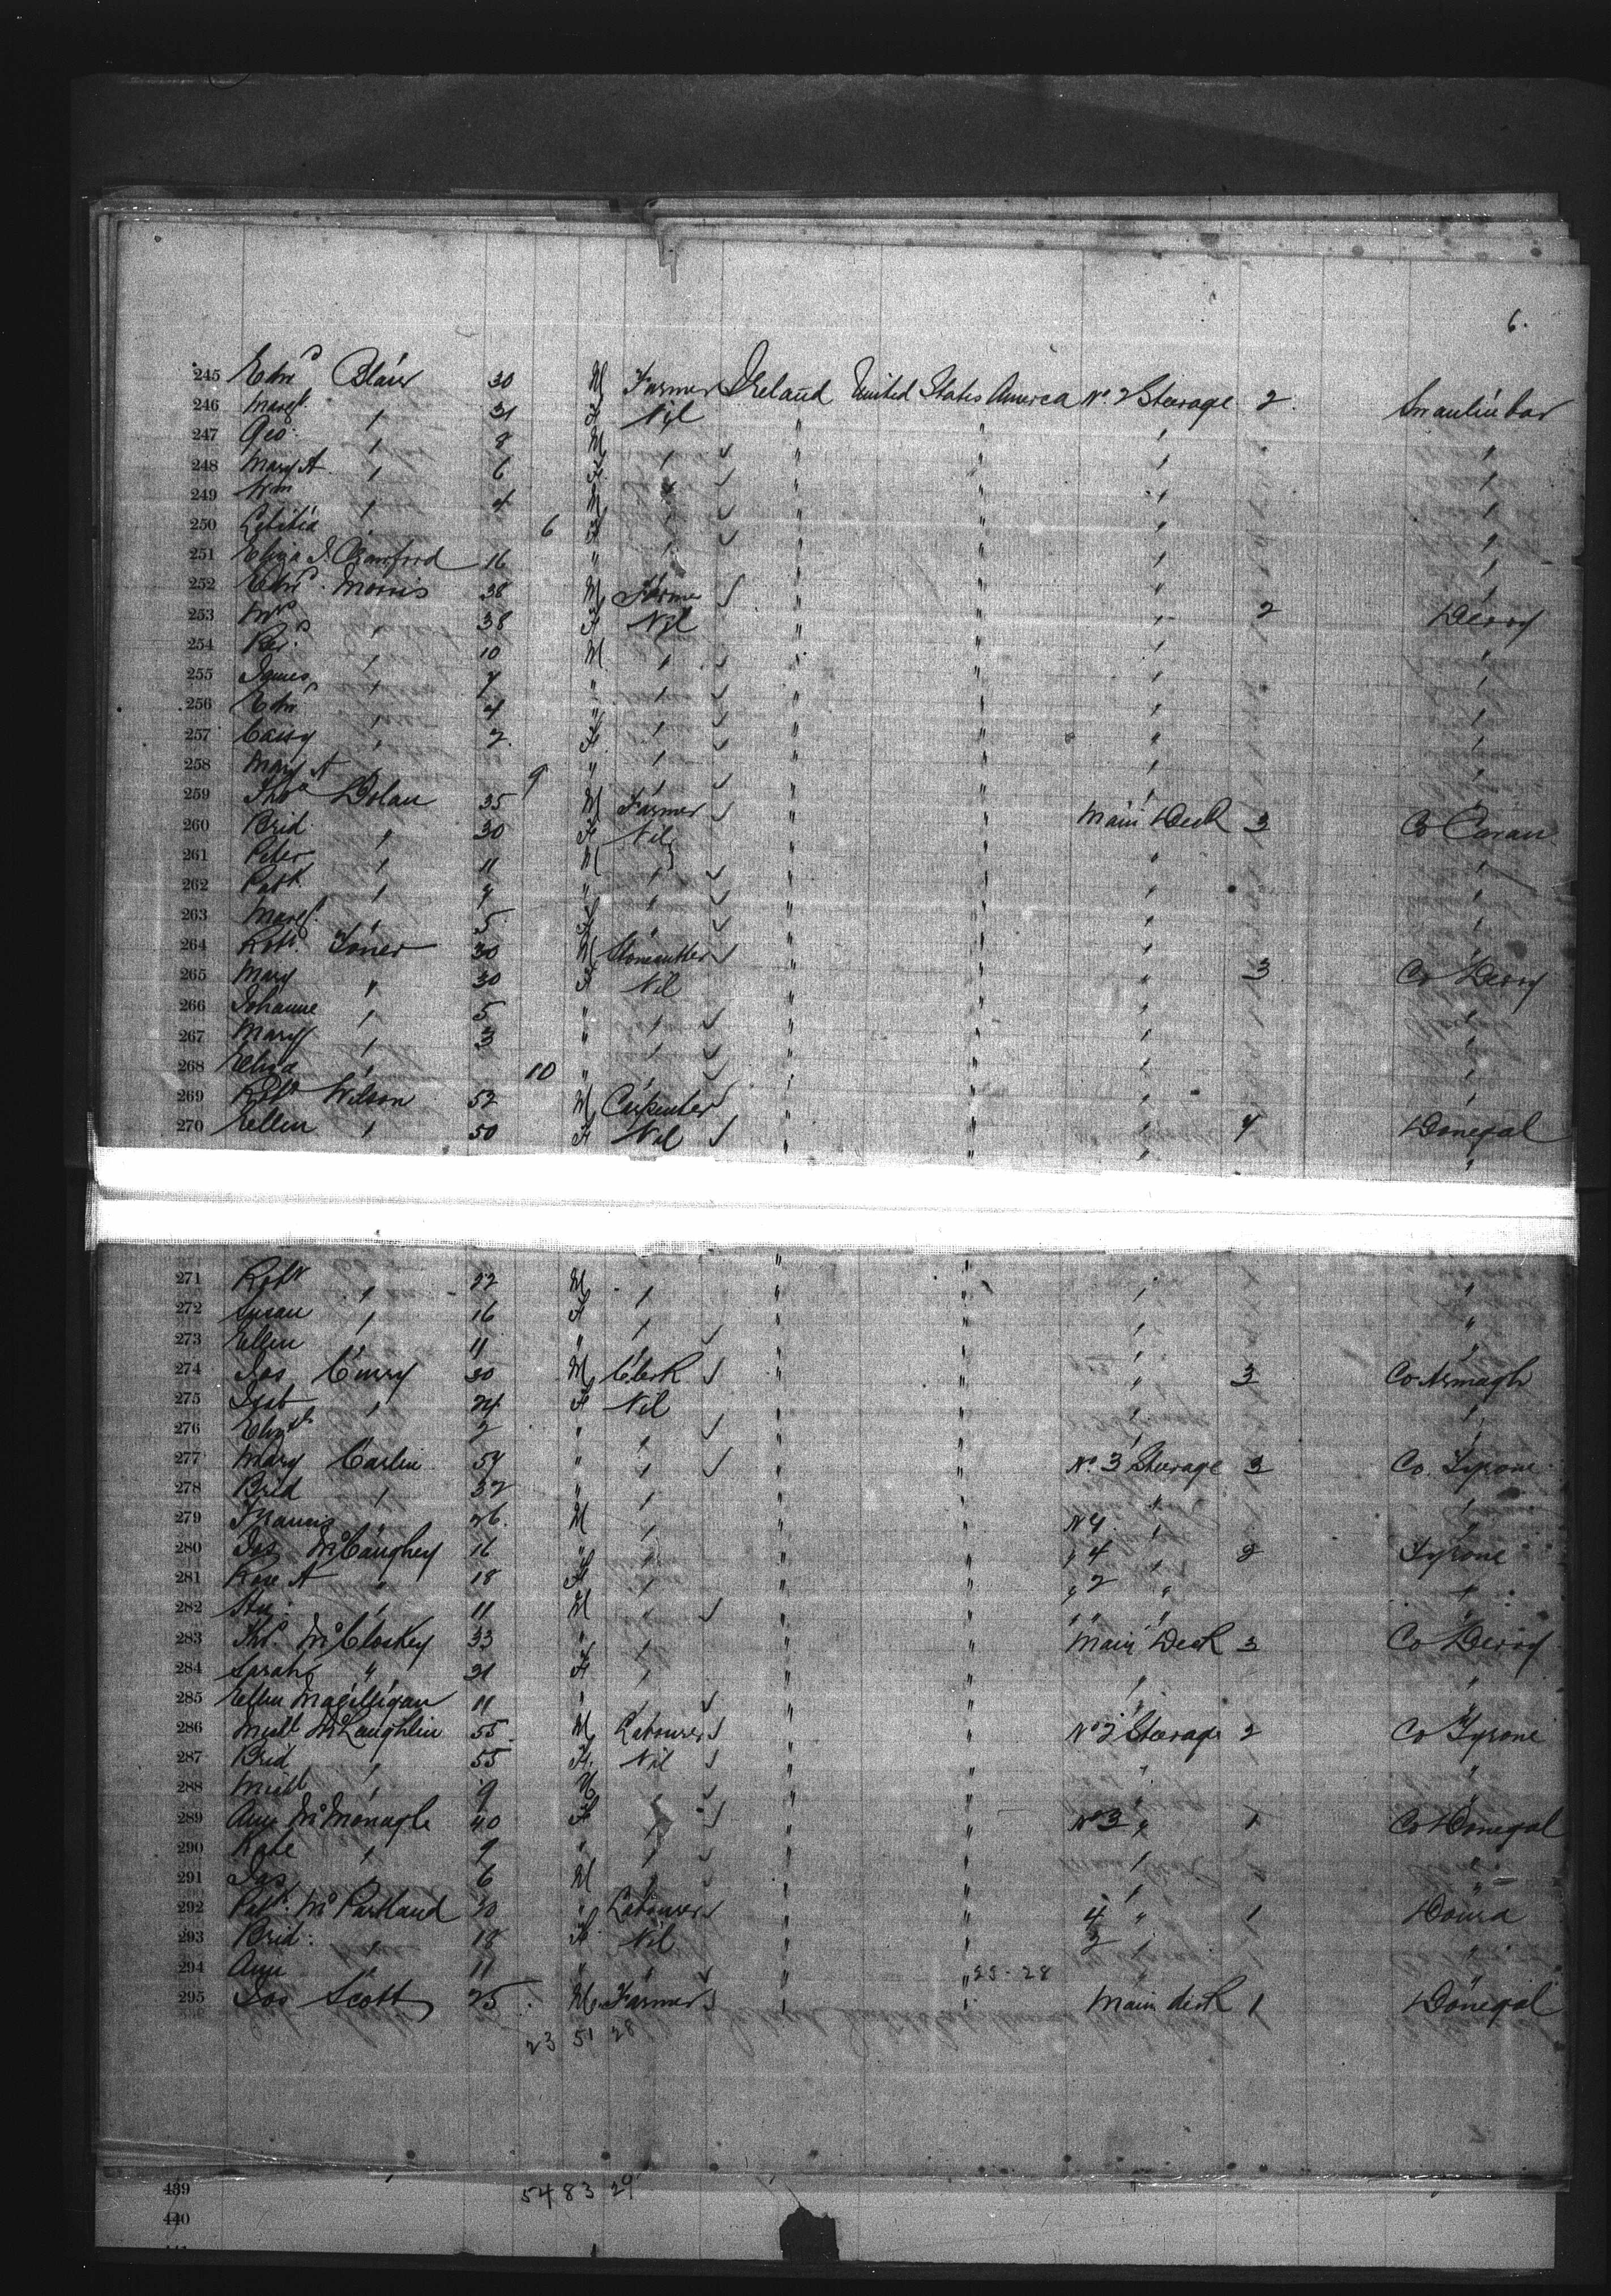 6.
245 Edwd Blair 30 M Farmer Ireland United States America No. 2 Steerage 2
246 Margt. " 31 F Nil " " "
247 Geo: " 8 M " " " " "
248 Mary A " 6 F " " " " "
249 Wm " 4 M " " " " "
250 Letitia " 6 F " " " " "
251 Eliza J. Crawford 16 " " " " " "
252 Edwd. Morris 38 M Farmer " " " 2 Derry
253 Mrs " 38 F Nil " " " "
254 " 10 M " " " " "
255 James " 7 " " " " " "
256 Edwd " 4 " " " " " "
257 Cassy " 2 F " " " " "
258 Mary A " 9 " " " " " "
259 Thos Dolan 35 M Farmer " " Main Deck 3 Co Cavan
260 Brid " 30 F Nil " " " "
261 Peter " 11 M " " " " "
262 Patk. " 7 " " " " " "
263 Margt. " 5 F " " " " "
264 Robt. Toner 30 M Stonecutter " " " 3 Co Derry
265 Mary " 30 F Nil " " " "
266 Johanne " 5 " " " " " "
267 Mary " 3 " " " " " "
268 Eliza " 10 " " " " " "
269 Robt Wilson 52 M Carpenter " " " 4 Donegal
270 Ellen " 50 F Nil " " " "
271 Robt " 22 M " " " " "
272 Susan " 16 F " " " " "
273 Ellen " 11 " " " " " "
274 Jas Curry 30 M Clerk " " " 3 Co Armagh
275 Isab " 24 F Nil " " " "
276 Elizth " 2 " " " " " "
277 Mary Carlin 54 " " " " No. 3 Steerage 3 Co. Tyrone
278 Brid " 32 " " " " " "
279 Francis " 26 M " " " No 4 " "
280 Jas McCaughey 16 " " " " " 4 " 2 Tyrone
281 Rose A " 18 F " " " " 2 " "
282 " 11 M " " " " " "
283 Thos. McCloskey 33 " " " " Main Deck 3 Co Derry
284 Sarah " 31 F " " " " "
285 Ellen Magilligan 11 " " " " " "
286 Michl McLaughlin 55 M Labourer " " No 2 Steerage 2 Co Tyrone
287 Brid " 55 F Nil " " " "
288 Michl " 9 M " " " " "
289 Ann McMonagle 40 F " " " No 3 " 1 Co Donegal
290 Kate " 9 " " " " " "
291 Jas " 6 M " " " " "
292 Patk. McPartland 20 " Labourer " " 4 " 1 Doura
293 Brid: " 18 F Nil " " 2 " "
294 Ann " 11 " " " " 23-28 " "
295 Jas Scott 25 M Farmer " " Main deck 1 Donegal
23 51 28
439 54 83 29
440